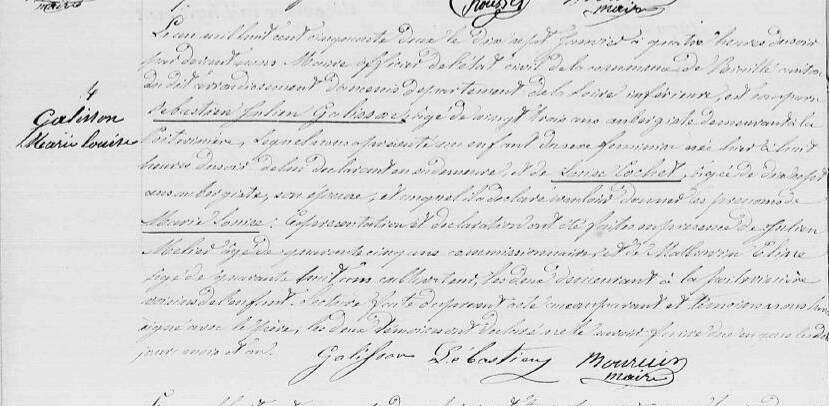 maire
Rousse
maire
L'an mil huit cent cinquante deux le dix sept janvier à quatre heures du soir
par devant nous Maire officier de l'état civil de la commune de canton
du dit arrondissement département de la Loire inférieure, est comparu
4
Galisson
Marie Louise
Sébastien Julien Galisson, âgé de vingt trois ans aubergiste demeurant à la
Poitevinière, lequel nous a présenté un enfant du sexe féminin née hier à huit
heures du soir de lui déclarant en sa demeure, et de Louise Cochet, âgée de dix sept
ans aubergiste, son épouse, et auquel il a déclaré vouloir donner les prénoms de
Marie Louise; les présentation et déclaration ont été faites en présence de Julien
âgé de quarante cinq ans commissionnaire, et de Mathurin
âgé de quarante huit ans cultivateur, les deux demeurant à la poitevinière
voisins de l'enfant. Lecture faite du présent acte au comparant et témoins nous l'avons
signé avec le père, les deux témoins ont déclaré ne le savoir faire de ce enquis les dits
jour mois et an.
Galisson Sébastien
maire